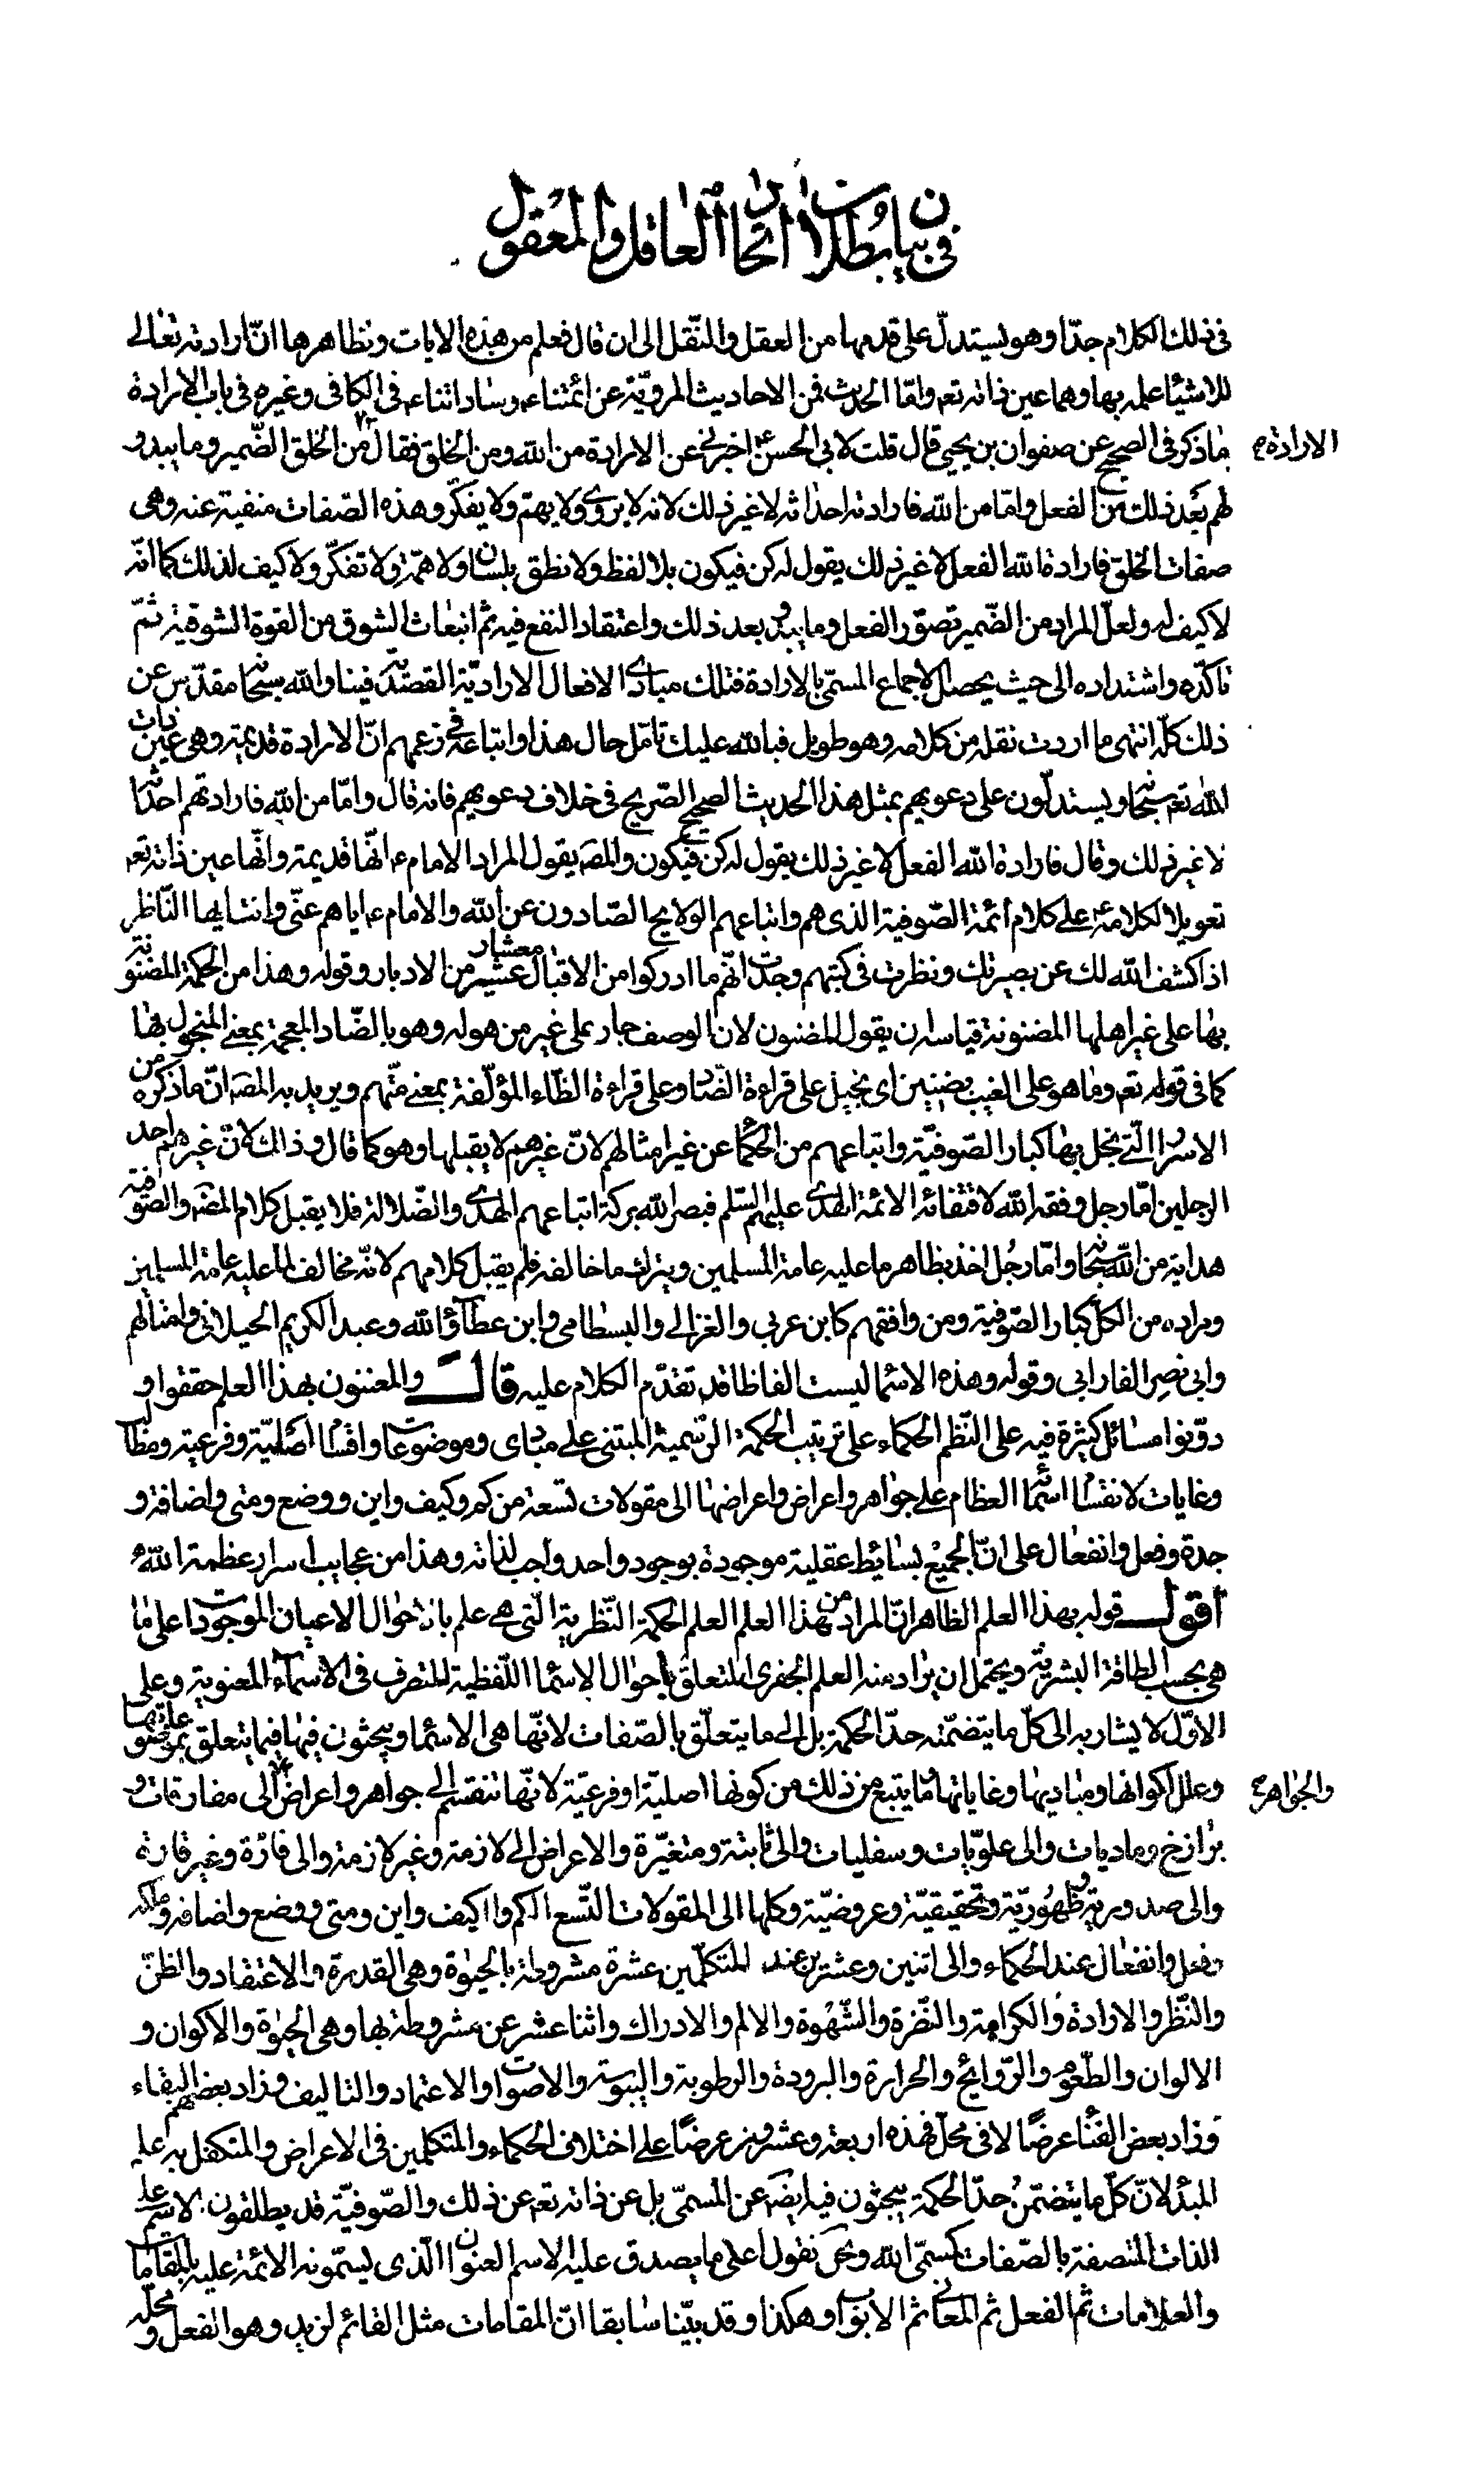 في بيان بطلان اتحاد العاقل والمعقول
في ذلك الكلام جدّا وهو يستدلّ على قدمها من العقل والنّقل الى ان قال فعلم من هذه الايات ونظاهرها انّ ارادته تعالى
للاشياء علمه بها وهما عين ذاته تعه وامّا الحديث فمن الاحاديث المرويّة عن ائمتناء وساداتناء في الكافي وغيره في باب الارادة
ما ذكر في الصحيح عن صفوان بن يحيى قال قلت لابي الحسن ع اخبرني عن الارادة من الله ومن الخلق فقال من الخلق الضّمير وما يبدو
الارادة
لهم بعد ذلك من الفعل وامّا من الله فارادته احداثه لا غير ذلك لانه لا يروّي ولا يهتم ولا يفكّر وهذه الصّفات منفية عنه وهي
صفات الخلق فارادة الله الفعل لا غير ذلك يقول له كن فيكون بلا لفظ ولا نطق بلسان ولا همّة ولا تفكّر ولا كيف لذلك كما انّه
لا كيف له ولعلّ المراد من الضّمير تصوّر الفعل وما يبدو بعد ذلك واعتقاد النفع فيه ثم انبعاث الشوق من القوة الشوقية ثمّ
تاكّده واشتداده الى حيث يحصل الاجماع المسمّى بالارادة فتلك مبادى الافعال الاراديّة القصديّة فينا والله سبحانه مقدّس عن
ذلك كلّه انتهى ما اردت نقله من كلامه وهو طويل فبالله عليك تامّل حال هذا واتباعه في زعمهم انّ الارادة قديمة وهي عين ذات
الله تعه سبحانه ويستدلّون على دعويهم بمثل هذا الحديث الصحيح الصّريح في خلاف دعويهم فانه قال وامّا من الله فارادتهم احداثه
لا غير ذلك وقال فارادة الله الفعل لا غير ذلك يقول له كن فيكون والمصَ يقول المراد الامام ء انّها قديمة وانّها عين ذاته تعه
تعويلا لكلامه ع على كلام ائمة الصّوفية الذي هم واتباعهم الولايج الصّادون عن الله والامام ء اياهم عنّى وانت يايها النّاظر
اذا كشف الله لك عن بصيرتك ونظرت في كتبهم وجدت انّهم ما ادركوا من الاقبال معشار عشير من الادبار وقوله وهذا من الحكمة المضنونة
بها على غير اهلها المضنونة قياسه ان يقول المضنون لان الوصف جار على غير من هو له وهو بالضّاد المعجمة بمعنى المنجول بها
كما في قوله تعه وما هو على الغيب بضنين اى بخيل على قراءة الضّاد وعلى قراءة الظّاء المؤلّفة بمعنى متّهم ويريد به المصَ انّ ما ذكره من
الاسرار الّتي بخل بها كبار الصّوفيّة واتباعهم من الحكماء عن غير امثالهم لانّ غيرهم لا يقبلها وهو كما قال وذلك لانّ غيرهم احد
الرجلين امّا رجل وفقه الله لاقتفائه الائمة الهدى عليهم السّلم فبصره الله بركة اتباعهم الهدى والضّلالة فلا يقبل كلام المصَ والصّوفية
هداية من الله سبحانه وامّا رجل اخذ بظاهر ما عليه عامة المسلمين ويترك ما خالفه فلم يقبل كلامهم لانّه مخالف لما عليه عامة المسلمين
ومراده من الكلّ كبار الصّوفية ومن وافقهم كابن عربي والغزالي والبسطامي وابن عطاء الله وعبد الكريم الجيلاني وامثالهم
وابي نصر الفارابي وقوله وهذه الاسماء ليست الفاظا قد تقدّم الكلام عليه قال والمعتنون بهذا العلم حققوا و
دوّنوا مسائل كثيرة فيه على النّظم الحكماء على ترتيب الحكمة الرّسمية المبتنى على مبادى وموضوعات واقسام اصليّة وفرعية ومطالب
وغايات لانقسام اسمائه العظام على جواهر واعراض واعراضها الى مقولات تسعة من كم وكيف واين ووضع ومتى واضافة و
جدة وفعل وانفعال على انّ الجميع بسائط عقلية موجودة بوجود واحد واجب لذاته وهذا من عجايب اسرار عظمة الله
اقول قوله بهذا العلم الظاهر انّ المراد من هذا العلم العلم الحكمة النّظرية الّتي هي علم باحوال الاعيان الموجودات على ما
هي بحسب الطاقة البشرية ويحتمل ان يراد منه العلم الجفري المتعلّق باحوال الاسماء اللّفظية للتصرف في الاسماء المعنوية وعلى
الاوّل لا يشار به الى كلّ ما يتضمّنه حدّ الحكمة بل الى ما يتعلّق بالصّفات لانّها هي الاسماء ويبحثون فيها فيما يتعلق بموضوعاتها
وعلل اكوانها ومباديها وغاياتها وما يتبع من ذلك من كونها اصليّة او فرعيّة لانّها تنقسم الى جواهر واعراض الى مفارقات و
والجواهر
برازخ وماديات والى علويّات وسفليات والى ثابتة ومتغيّرة والاعراض الى لازمة وغير لازمة والى قارّة وغير قارة
والى صدورية وظهوريّة وتحقيقيّة وعروضيّة وكلها الى المقولات التّسع الكم والكيف واين ومتى ووضع واضافة وملكة
وفعل وانفعال عند الحكماء والى اثنين وعشرين عند المتكلّمين عشرة مشروطة بالحيوة وهي القدرة والاعتقاد والظنّ
والنّظر والارادة والكراهة والنّفرة والشّهوة والالم والادراك واثنا عشر عن مشروطة بها وهي الحيوة والاكوان و
الالوان والطّعوم والرّوائح والحرارة والبرودة والرطوبة واليبوسة والاصوات والاعتماد والتاليف وزاد بعضهم البقاء
وزاد بعض الفناء عرضًا لا في محلّ فهذه اربعة وعشرون عرضًا على اختلاف الحكماء والمتكلمين في الاعراض والمتكفل به علم
المبدء لانّ كلّ ما يتضمّن حدّ الحكمة يبحثون فيه ايضَ عن المسمّى بل عن ذاته تعه عن ذلك والصّوفيّة قد يطلقون الاسم على
الذات المتصفة بالصّفات كمسمّى الله ونحن نقول على ما يصدق عليه الاسم العنوان الّذي يسمّونه الائمة عليه بالمقامات
والعلامات ثم الفعل ثم المعاني ثم الابواب وهكذا وقد بيّنا سابقا انّ المقامات مثل القائم لزيد وهو الفعل ومحلّه